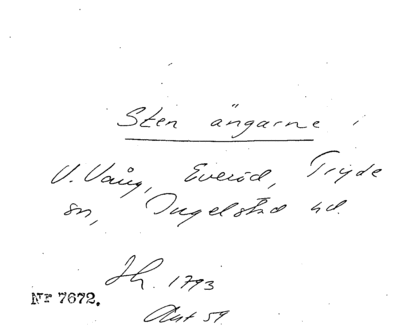 Sten ängarne i
V. Vång, Everöd, Tryde
sn, Ingelstad hd.
Jh. 1793
Akt 59
Nr 7672.